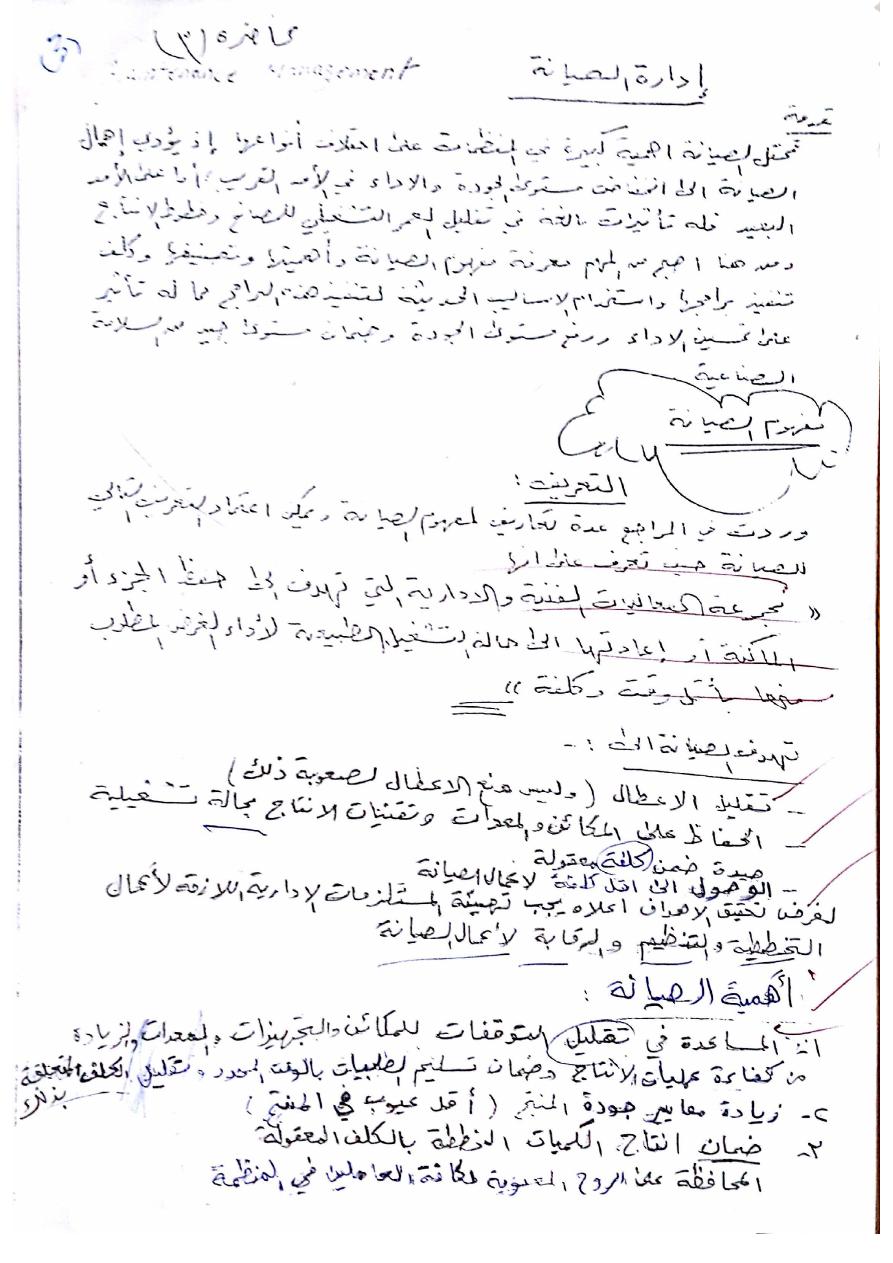 محاضرة (٣)
إدارة الصيانة Maintenance Management
مقدمة
تحتل الصيانة اهمية كبيرة في المنظمات على اختلاف أنواعها إذ يؤدي إهمال
الصيانة الى انخفاض مستوى الجودة والاداء في الأمد القريب أما على الأمد
البعيد فله تأثيرات بالغة في تقليل العمر التشغيلي للمصانع وخطوط الانتاج
ومن هنا اصبح من المهم معرفة مفهوم الصيانة وأهميتها وتصنيفها وكلف
تنفيذ برامجها واستخدام الاساليب الحديثة لتنفيذ هذه البرامج مما له تأثير
على تحسين الاداء ورفع مستوى الجودة وضمان مستوى جيد من السلامة
الصناعية
مفهوم الصيانة
التعريف :
وردت في المراجع عدة تعاريف لمفهوم الصيانة ويمكن اعتماد التعريف التالي
للصيانة حيث تعرف على انها
« مجموعة الفعاليات الفنية والادارية التي تهدف الى حفظ الجزء أو
الماكنة أو إعادتها الى حالة التشغيل الطبيعية لأداء الغرض المطلوب
منها بأقل وقت وكلفة »
تهدف الصيانة الى : -
- تقليل الاعطال ( وليس منع الاعطال لصعوبة ذلك )
- الحفاظ على المكائن والمعدات وتقنيات الانتاج بحالة تشغيلية
جيدة ضمن كلفة معقولة
- الوصول الى اقل كلفة لاعمال الصيانة
لغرض تحقيق الاهداف اعلاه يجب تهيئة المستلزمات الإدارية اللازمة لأعمال
التخطيط والتنظيم والرقابة لأعمال الصيانة
أهمية الصيانة :
١- المساعدة في تقليل التوقفات للمكائن والتجهيزات والمعدات لزيادة
من كفاءة عمليات الانتاج وضمان تسليم الطلبيات بالوقت المحدد وتقليل الكلف المتعلقة
بذلك
٢- زيادة معايير جودة المنتج ( أقل عيوب في المنتج )
٣- ضمان انتاج الكميات المخططة بالكلف المعقولة
المحافظة على الروح المعنوية لكافة العاملين في المنظمة